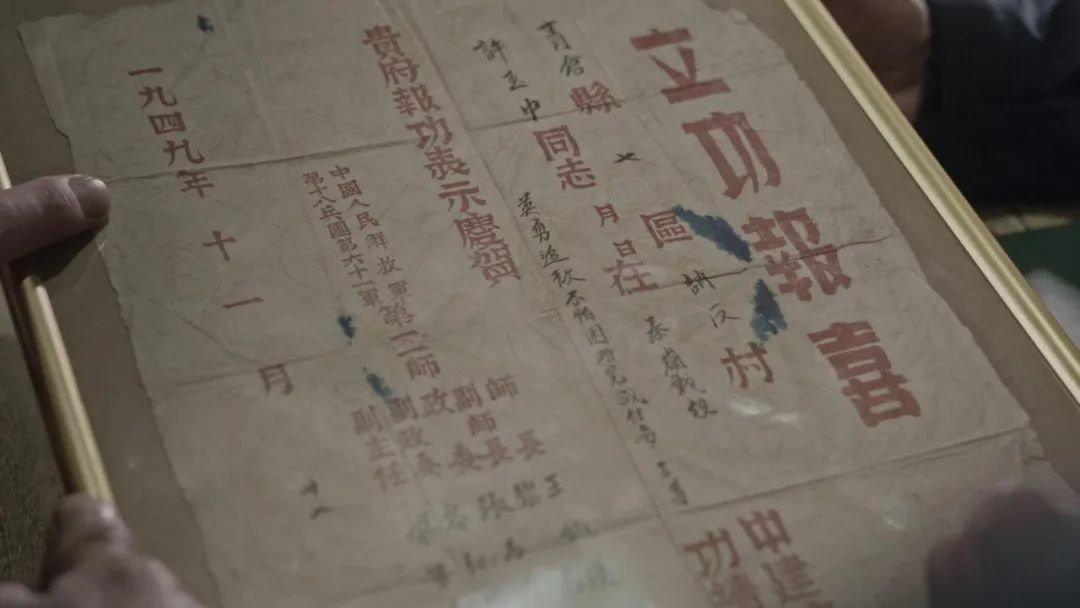 立功報喜
縣 七 區 村
許玉中同志 月 日在 秦嶺戰役
英勇追敌不怕困难完成任务
中建
功績
貴府報功表示慶賀
中國人民解放軍
第十八兵團第六十一軍
師長 王
副師長
政委 張
副政委
副主任
一九四九年十一月